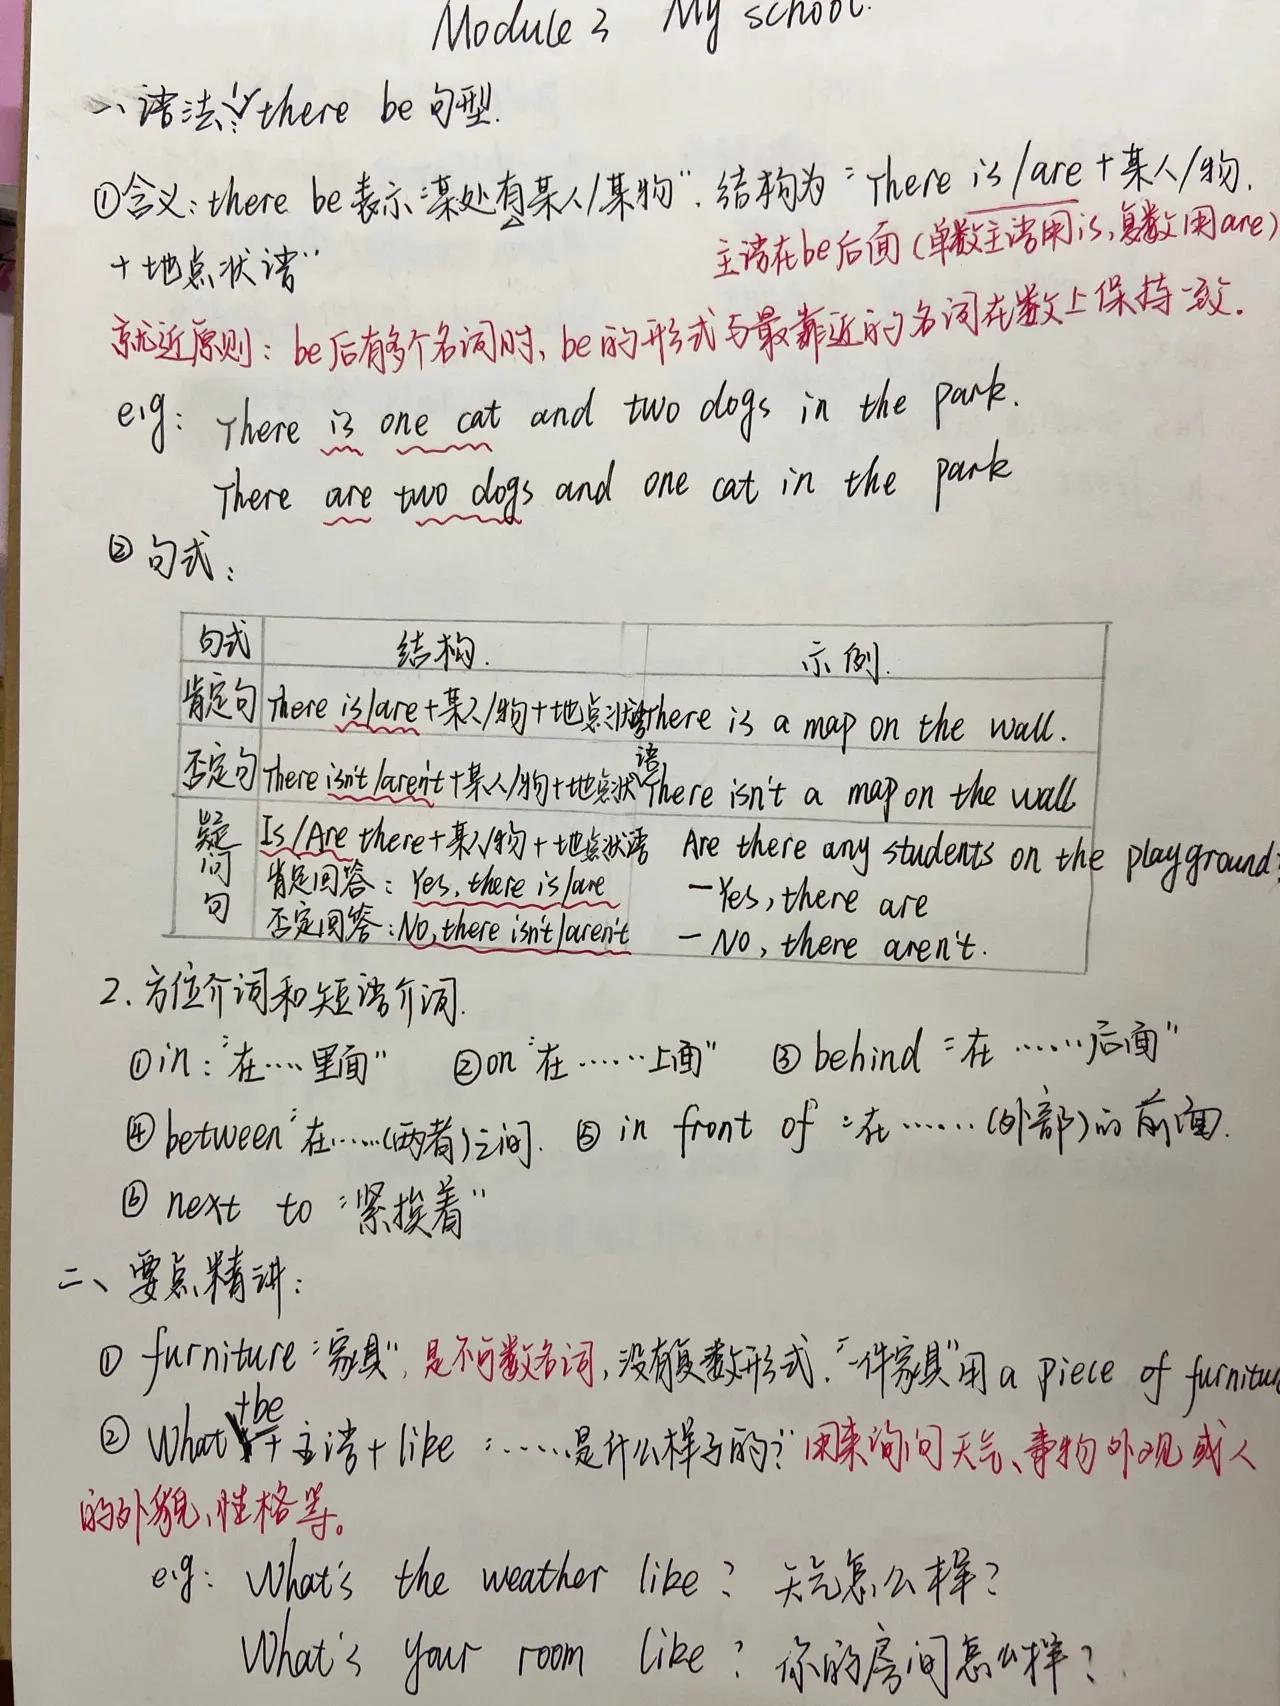 Module 3 My school.
一、语法: 1. there be 句型.
①含义: there be 表示"某处有某人/某物". 结构为"There is/are + 某人/物.
+ 地点状语"
主语在be后面(单数主语用is,复数用are)
就近原则: be后有多个名词时, be的形式与最靠近的名词在数上保持一致.
eig: There is one cat and two dogs in the park.
There are two dogs and one cat in the park
② 句式:
句式 结构. 示例.
肯定句 There is/are+某人/物+地点状语 There is a map on the wall.
否定句 There isn't/aren't+某人/物+地点状语 There isn't a map on the wall
疑问句 Is/Are there+某人/物+地点状语 Are there any students on the playground?
肯定回答: Yes, there is/are —Yes, there are
否定回答: No, there isn't/aren't — No, there aren't.
2. 方位介词和短语介词.
①in: "在……里面" ②on "在……上面" ③behind "在……后面"
④between "在……(两者)之间. ⑤in front of "在……(外部)的前面.
⑥ next to "紧挨着"
二、要点精讲:
① furniture "家具", 是不可数名词, 没有复数形式. "一件家具"用 a piece of
② What +be + 主语 + like "……是什么样子的?" 用来询问天气、事物外观或人
的外貌、性格等。
eig: What's the weather like? 天气怎么样?
What's your room like? 你的房间怎么样?